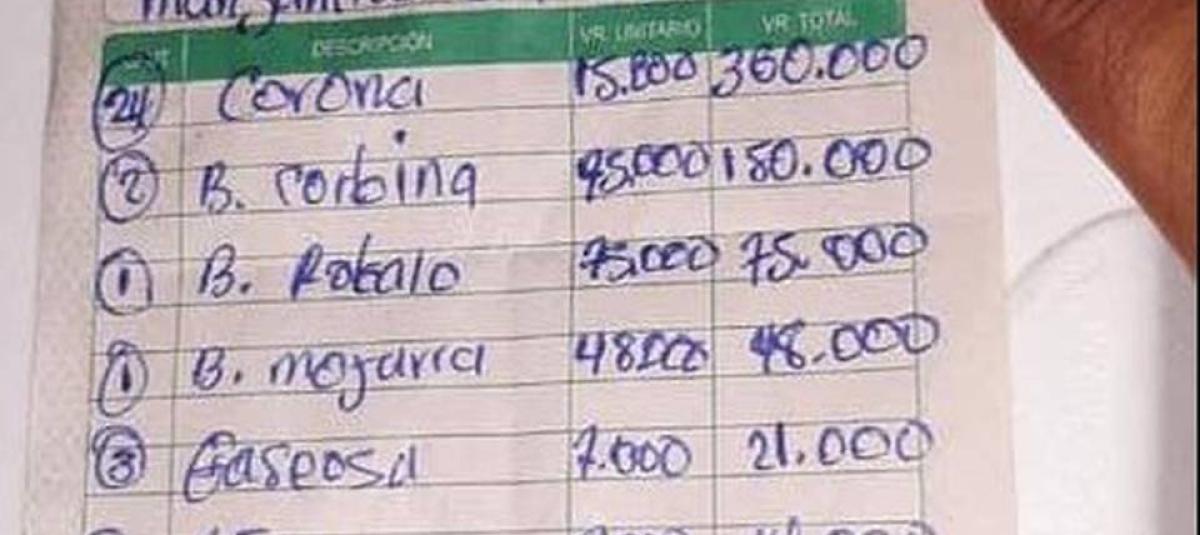 DESCRIPCIÓN VR. UNITARIO VR. TOTAL
24 Corona 15.000 360.000
2 B. corbina 150.000
1 B. Robalo 75.000 75.000
1 B. mojarra 48.000
3 Gaseosa 7.000 21.000